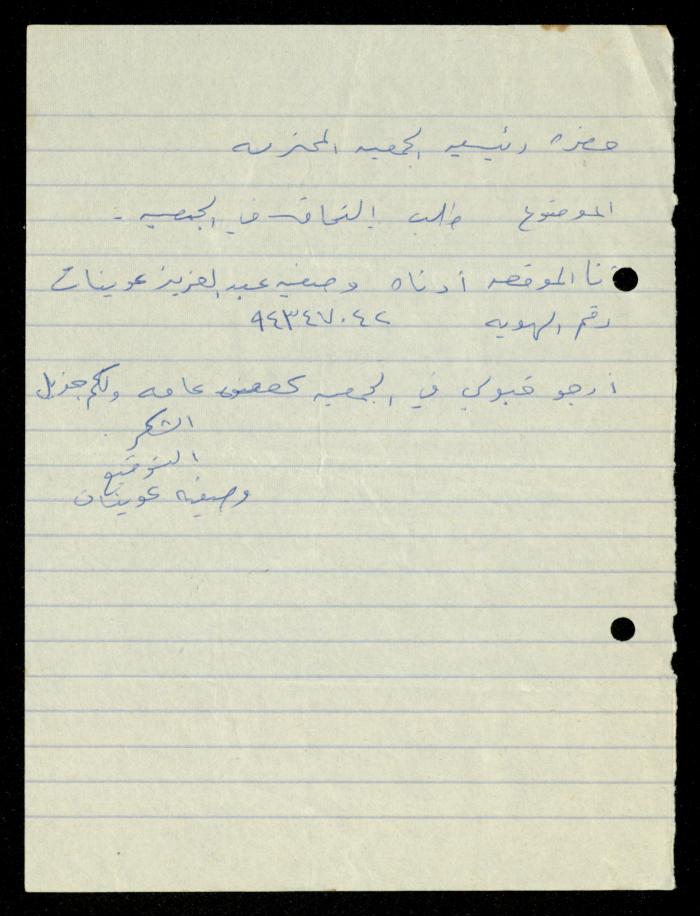 حضرة رئيسيه الجمعيه المحترمه
الموضوع طلب إلتحاق في الجمعيه .
أنا الموقعه أدناه وصفيه عبد العزيز عوينات
رقم الهويه ٩٤٣٤٧٠٤٢
أرجو قبولي في الجمعيه كعضوه عامه ولكم جزيل
الشكر
التوقيع
وصفيه عوينات